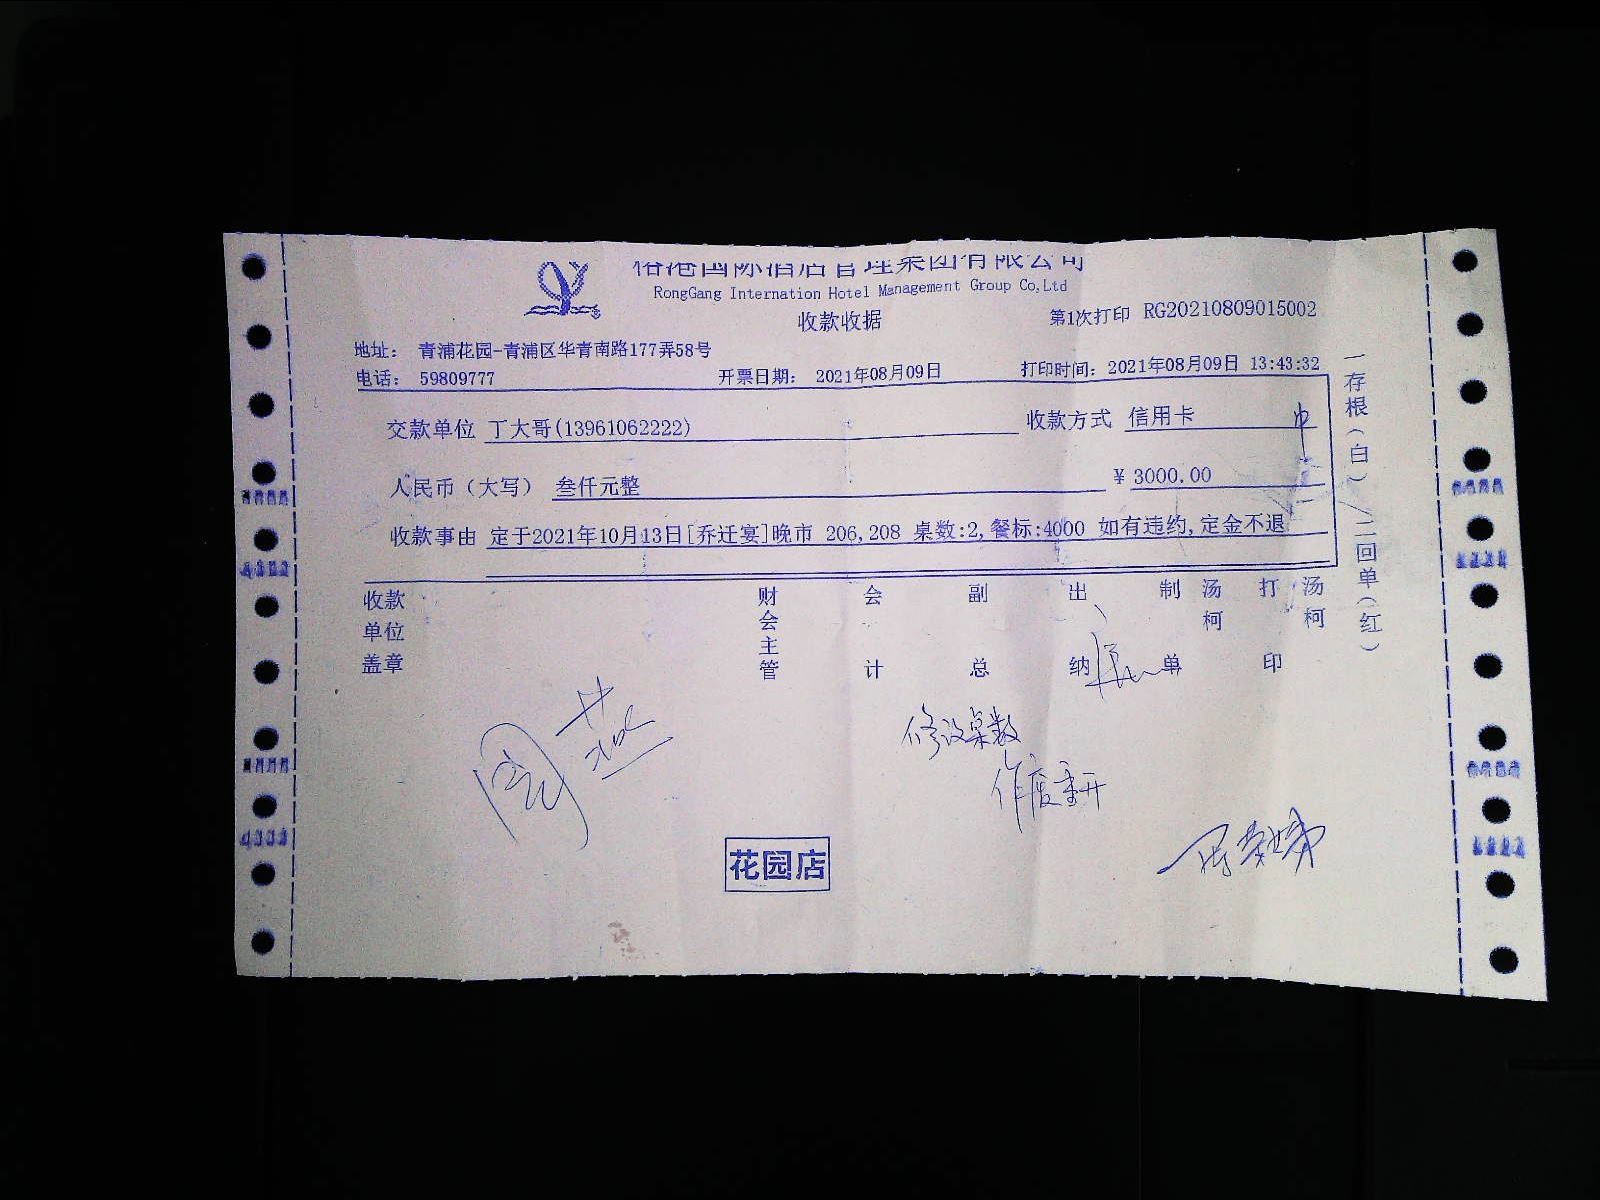 俗港国际酒店管理集团有限公司
RongGang Internation Hotel Management Group Co,Ltd
收款收据
第1次打印 RG20210809015002
地址： 青浦花园-青浦区华青南路177弄58号
电话： 59809777 开票日期： 2021年08月09日 打印时间：2021年08月09日 13:43:32
交款单位 丁大哥(13961062222) 收款方式 信用卡
人民币（大写） 叁仟元整 ￥3000.00
收款事由 定于2021年10月13日[乔迁宴]晚市 206,208 桌数:2,餐标:4000 如有违约,定金不退
一存根（白）/二回单（红）
收款单位盖章 财会主管 会计 副总 出纳 制单 汤柯 打印 汤柯
周燕
修改桌数
作废重开
花园店